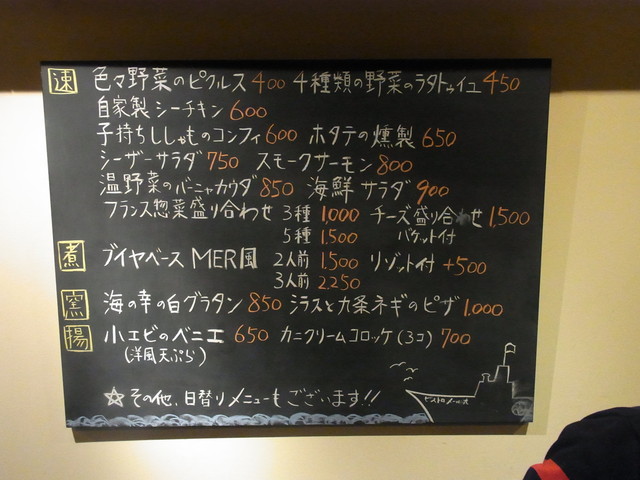 速 色々野菜のピクルス 400 4種類の野菜のラタトゥイユ 450
自家製シーチキン 600
子持ちししゃものコンフィ 600 ホタテの燻製 650
シーザーサラダ 750 スモークサーモン 800
温野菜のバーニャカウダ 850 海鮮サラダ 900
フランス惣菜盛り合わせ 3種 1,000 チーズ盛り合わせ 1,500
5種 1,500 バケット付
煮 ブイヤベース MER風 2人前 1,500 リゾット付 +500
3人前 2250
窯 海の幸の白グラタン 850 シラスと九条ネギのピザ 1,000
揚 小エビのベニエ 650 カニクリームコロッケ(3コ) 700
(洋風天ぷら)
☆ その他、日替りメニューもございます!!